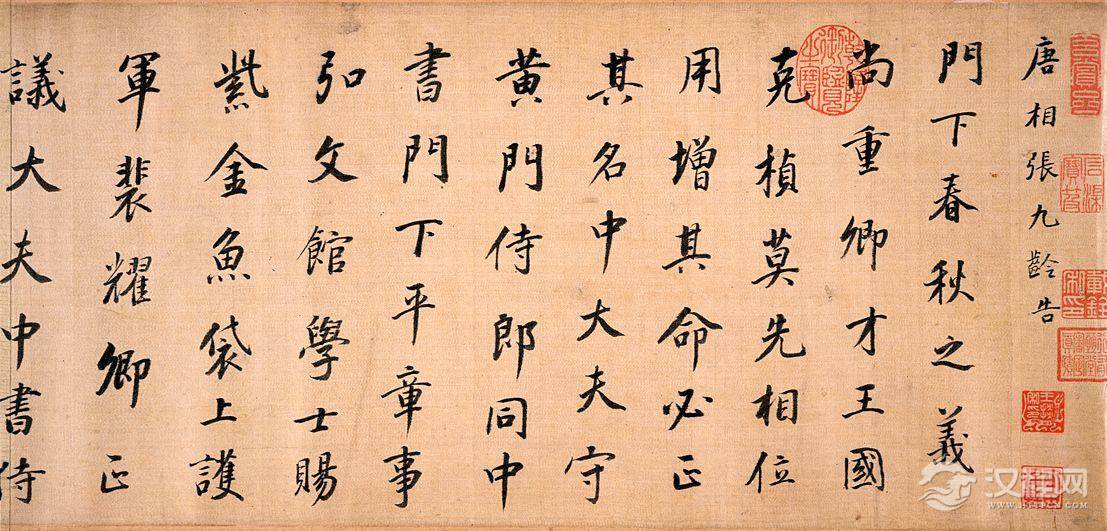 唐相張九齡告
門下春秋之義
尚重卿才王國
克楨莫先相位
用增其命必正
其名中大夫守
黄門侍郎同中
書門下平章事
弘文館學士賜
紫金魚袋上護
軍裴耀卿正
議大夫中書侍
汉程网